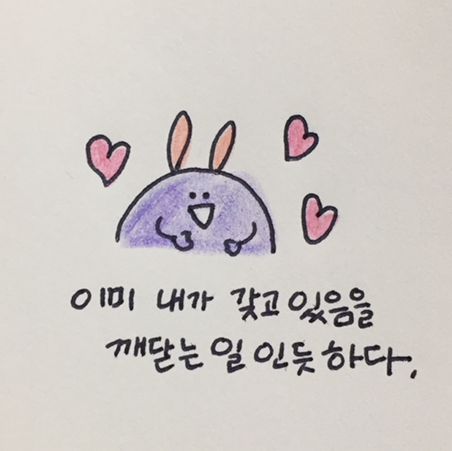 이미 내가 갖고 있음을
깨닫는 일 인듯 하다.